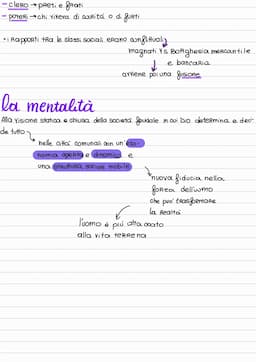 - CLERO → preti e frati
- POVERI → chi viveva di carità o di furti
• i rapporti tra le classi sociali erano conflittuali
magnati Vs Borghesia mercantile
e bancaria
avviene poi una fusione
la mentalità
Alla visione statica e chiusa della società feudale in cui Dio determina e deci-
de tutto
nelle città comunali con un'eco-
nomia aperta e dinamica e
una struttura sociale mobile
nuova fiducia nella
forza dell'uomo
che può trasformare
la realtà
l'uomo è più attaccato
alla vita terrena